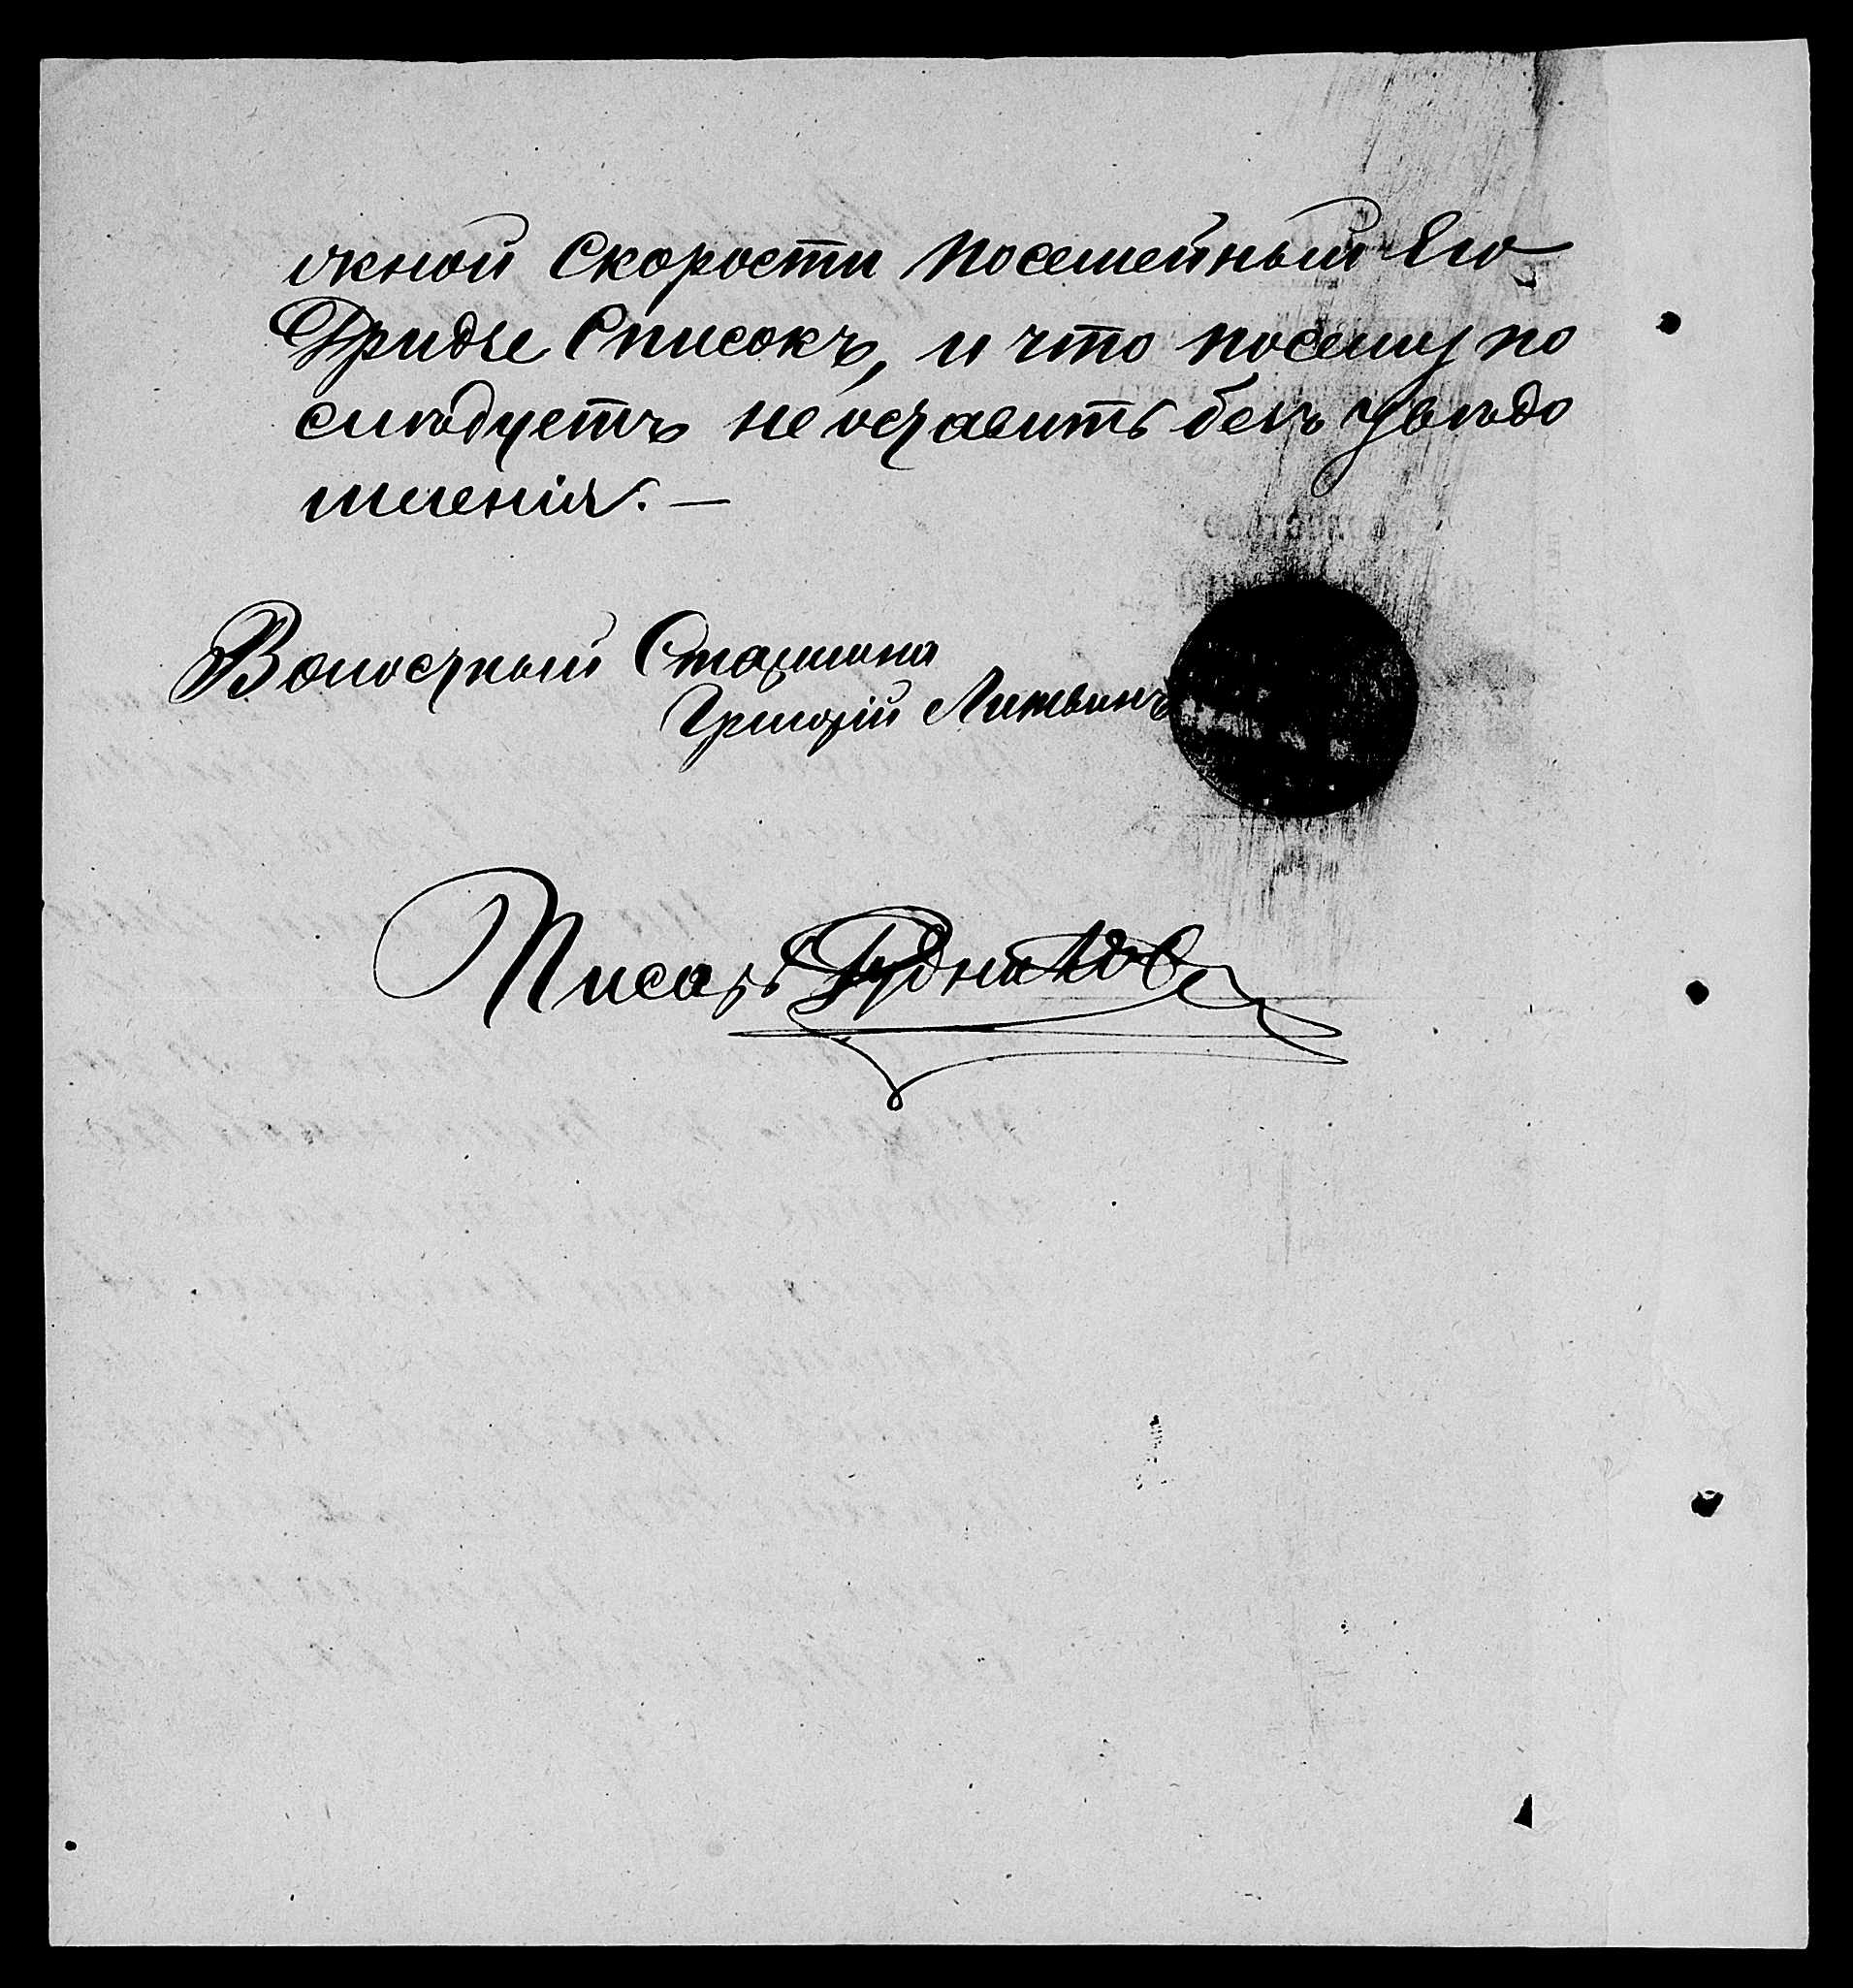 жной Скорости посемейный Его
Гридѣе Списокъ, и что посему по
слѣдуетъ не оставить безъ увѣдо
мленія. —
Волостный Старшина
Григорій Литвинъ
Писарь Рудниковъ